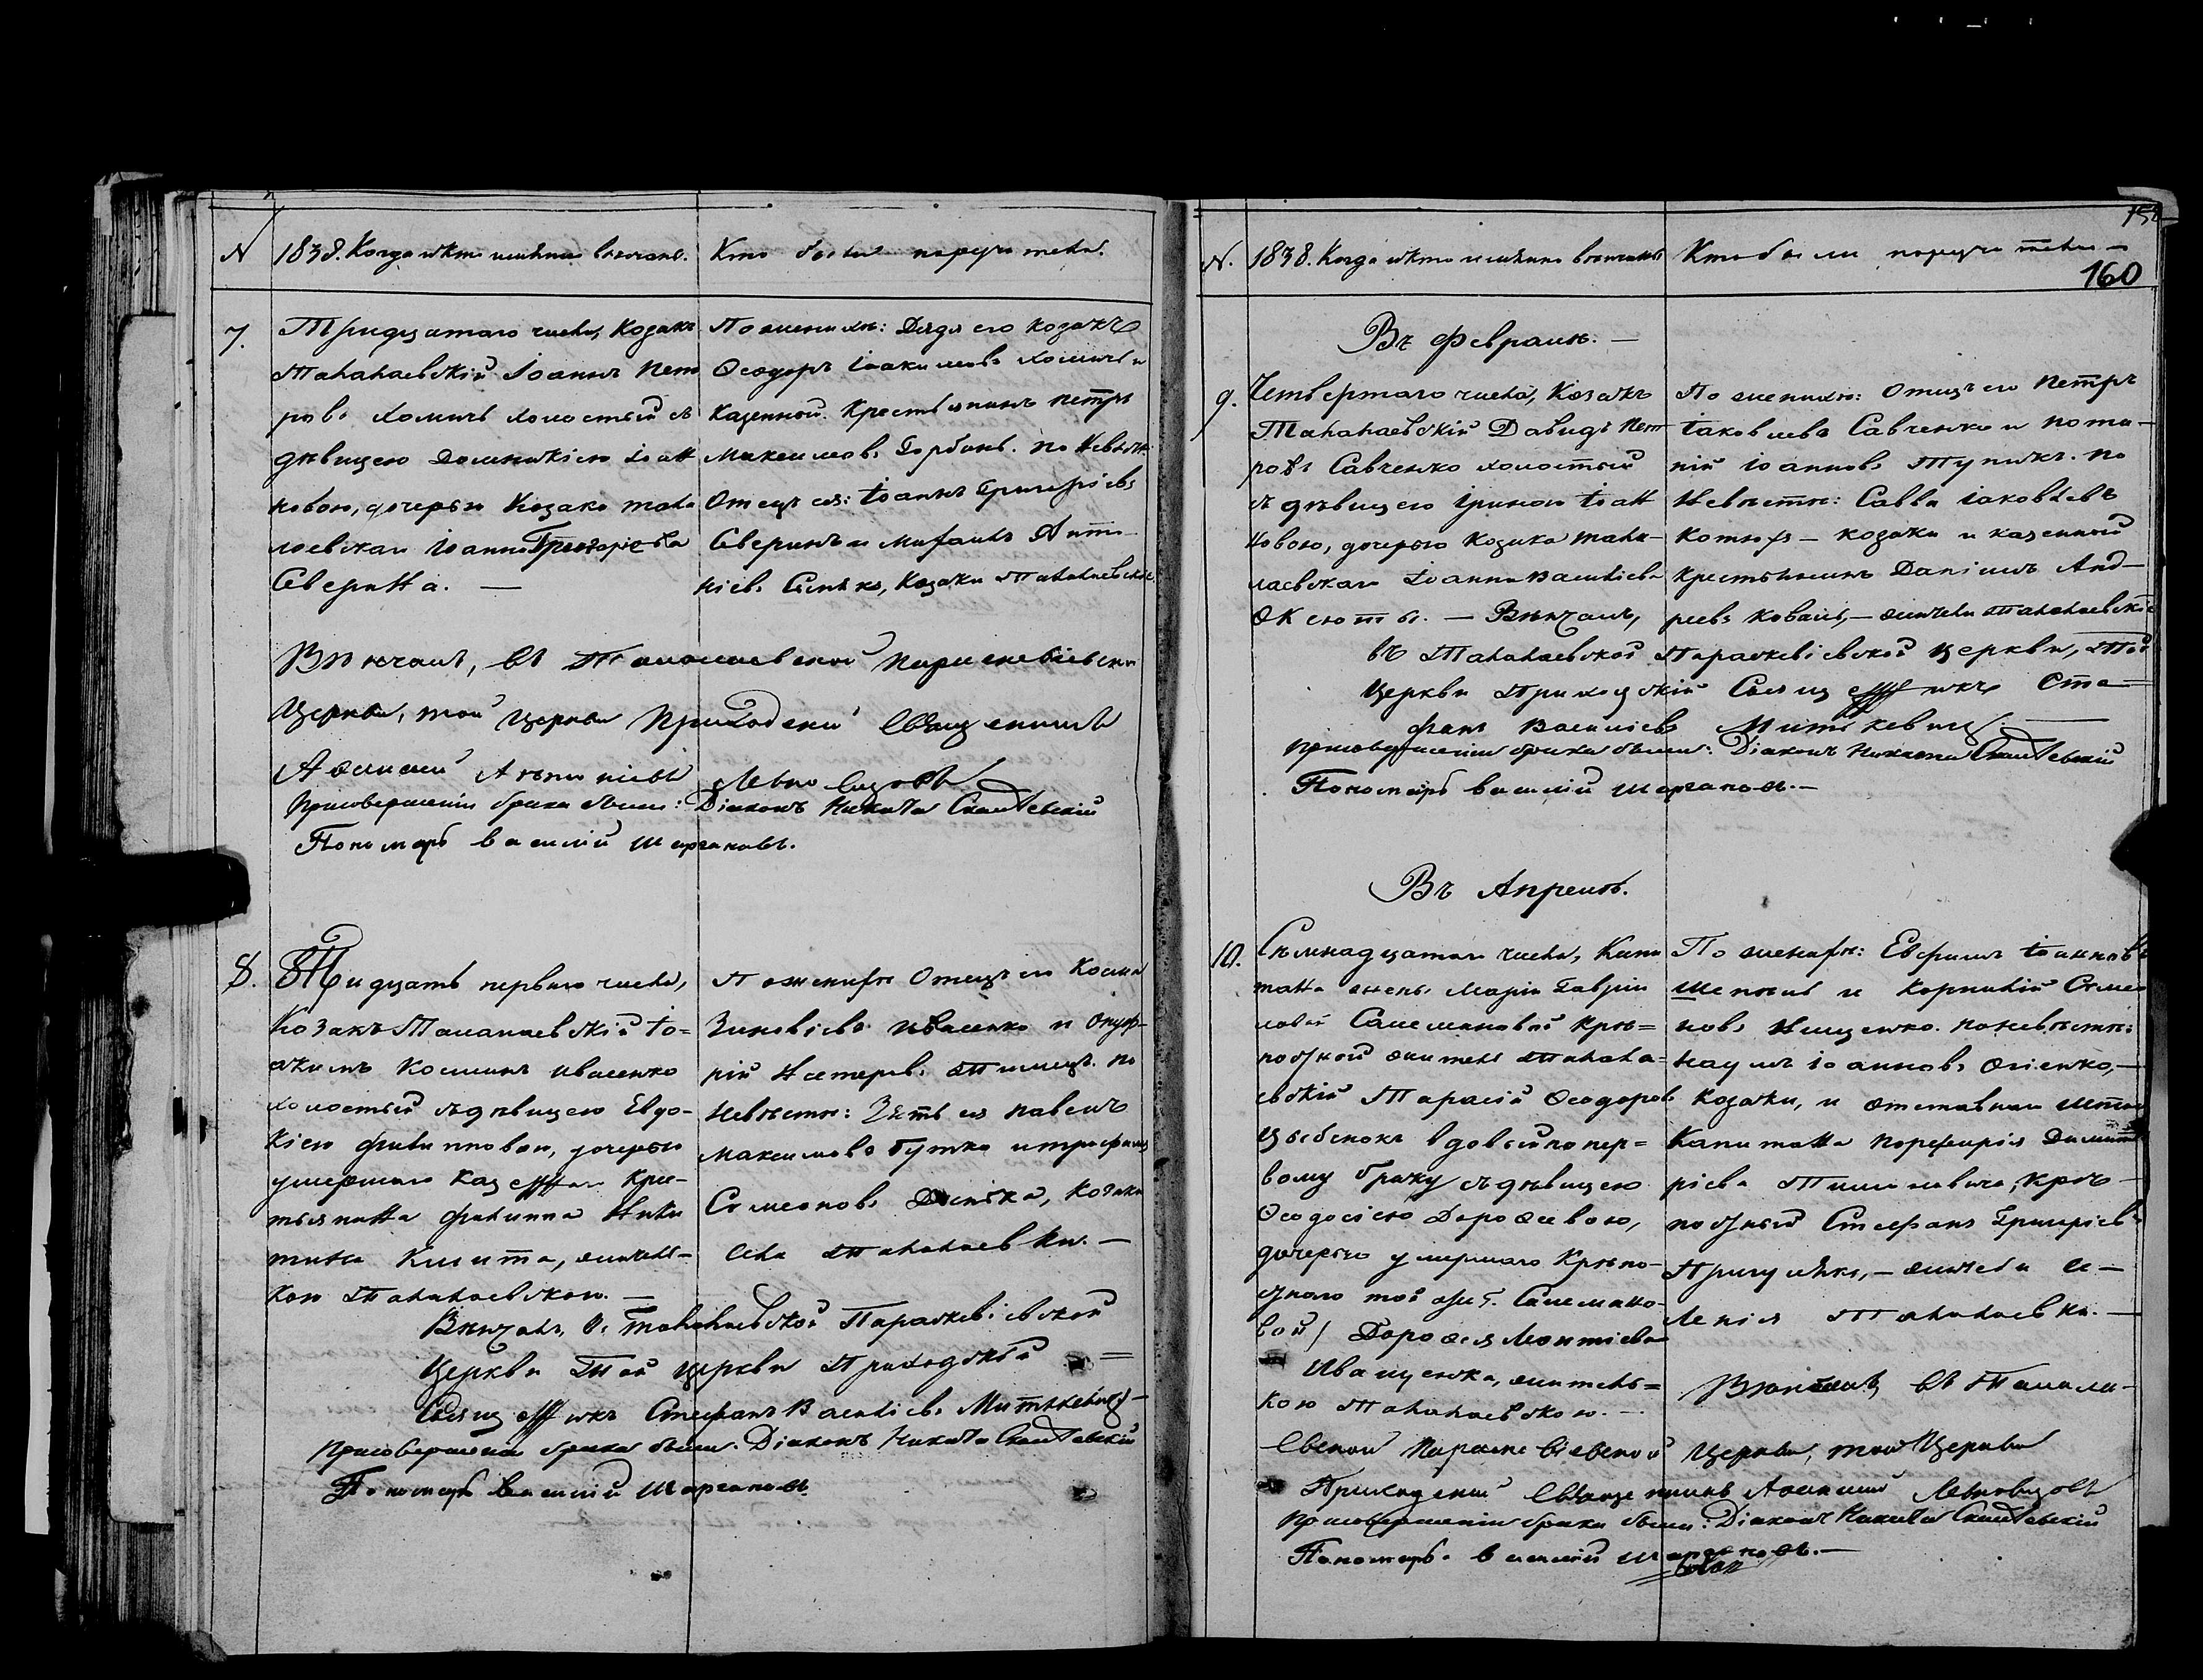 N 1838. Когда и кто именно венчаны.
Кто были поручители.
7. Тридцатаго числа, Козакъ
Талалаевскій Іоаннъ Пет
ровъ Хомичъ холостый съ
девицею Домникіею Іоан
новою, дочерью Козака Тала
лаевскаго Іоанна Григоріева
Северина. —
По женихѣ: Дядя его Козакъ
Ѳеодоръ Іоакимовъ Хомичъ и
Казенной Крестьянинъ Петръ
Максимовъ Горбань. По Невѣстѣ
Отецъ ея: Іоаннъ Григоріевъ
Северинъ и Михаилъ Анто
ніевъ, Козаки Талалаевскіе
Вѣнчалъ, въ Талалаевской Параскевіевской
Церкви, той Церкви Приходскій Священникъ
Афанасій
При совершеніи брака были: Діаконъ Никита
Пономарь Василій Шаргановъ.
8. Тридцать перваго числа,
Козакъ Талалаевскій Іо=
акимъ Косминъ Ивасенко
холостый съ дѣвицею Евдо-
кіею Филипповою, дочерью
умершаго Казеннаго Крес-
тьянина Филиппа Ники
тина, житель-
кою Талалаевскою. —
По женихѣ Отецъ его Косма
Зиновіевъ Ивасенко и Онуф-
рій Нестеровъ. По
Невѣстѣ: Зять ея Павелъ
Максимовъ Бутко и Трофимъ
Симеоновъ, Козаки
села Талалаевки. —
Вѣнчалъ, въ Талалаевской Параскевіевской
Церкви Той Церкви Приходскій =
Священникъ Стефанъ Василіевъ Миткевичъ —
При совершеніи брака были: Діаконъ Никита
Пономарь Василій Шаргановъ.
N. 1838. Когда и кто именно венчаны
Кто были поручители —
160
Въ Февралѣ. —
9. Четвертаго числа, Козакъ
Талалаевскій Давидъ Пет
ровъ Савченко холостый
съ дѣвицею Іриною Іоан
новою, дочерью Козака Тала-
лаевскаго Іоанна Василіева
Оксюты. — Вѣнчалъ,
По женихѣ: Отецъ его Петръ
Іаковлевъ Савченко и Пота-
пій Іоанновъ Тупикъ. По
Невѣстѣ: Савва Іаковлевъ
— Козаки и казенной
Крестьянинъ Даніилъ Анд-
реевъ Коваль, — жители Талалаевскіе
въ Талалаевской Параскевіевской Церкви, Той
Церкви Приходскій Священникъ Сте-
фанъ Василіевъ Миткевичъ. —
При совершеніи брака были: Діаконъ Никита
Пономарь Василій Шаргановъ. —
Въ Апрелѣ.
10. Сѣмнадцатаго числа, Капи
тана жены Маріи Гаврии
ловой Крѣ=
постной житель Талала=
евскій Тарасій Ѳеодоровъ
вдовый по пер=
вому браку съ дѣвицею
Ѳеодосіею Дороѳеевою,
дочерью умершаго Крѣпо-
стнаго той же
Дороѳея Леонтіева
Иващенка, житель=
кою Талалаевскою. —
По женихѣ: Евфимъ Іоанновъ
и Корнилій Симео
новъ Нищенко. По невѣстѣ:
Наумъ Іоанновъ, —
Козаки, и отставнаго Штабъ
Капитана Порфирія Димит
ріева, крѣ-
постный Стефанъ Григоріевъ
— жители се-
ленія Талалаевки. —
Вѣнчалъ въ Талала-
евской Параскевіевской Церкви, той Церкви
Приходскій Священникъ Афанасій
При совершеніи брака были: Діаконъ Никита
Пономарь Василій Шаргановъ. —